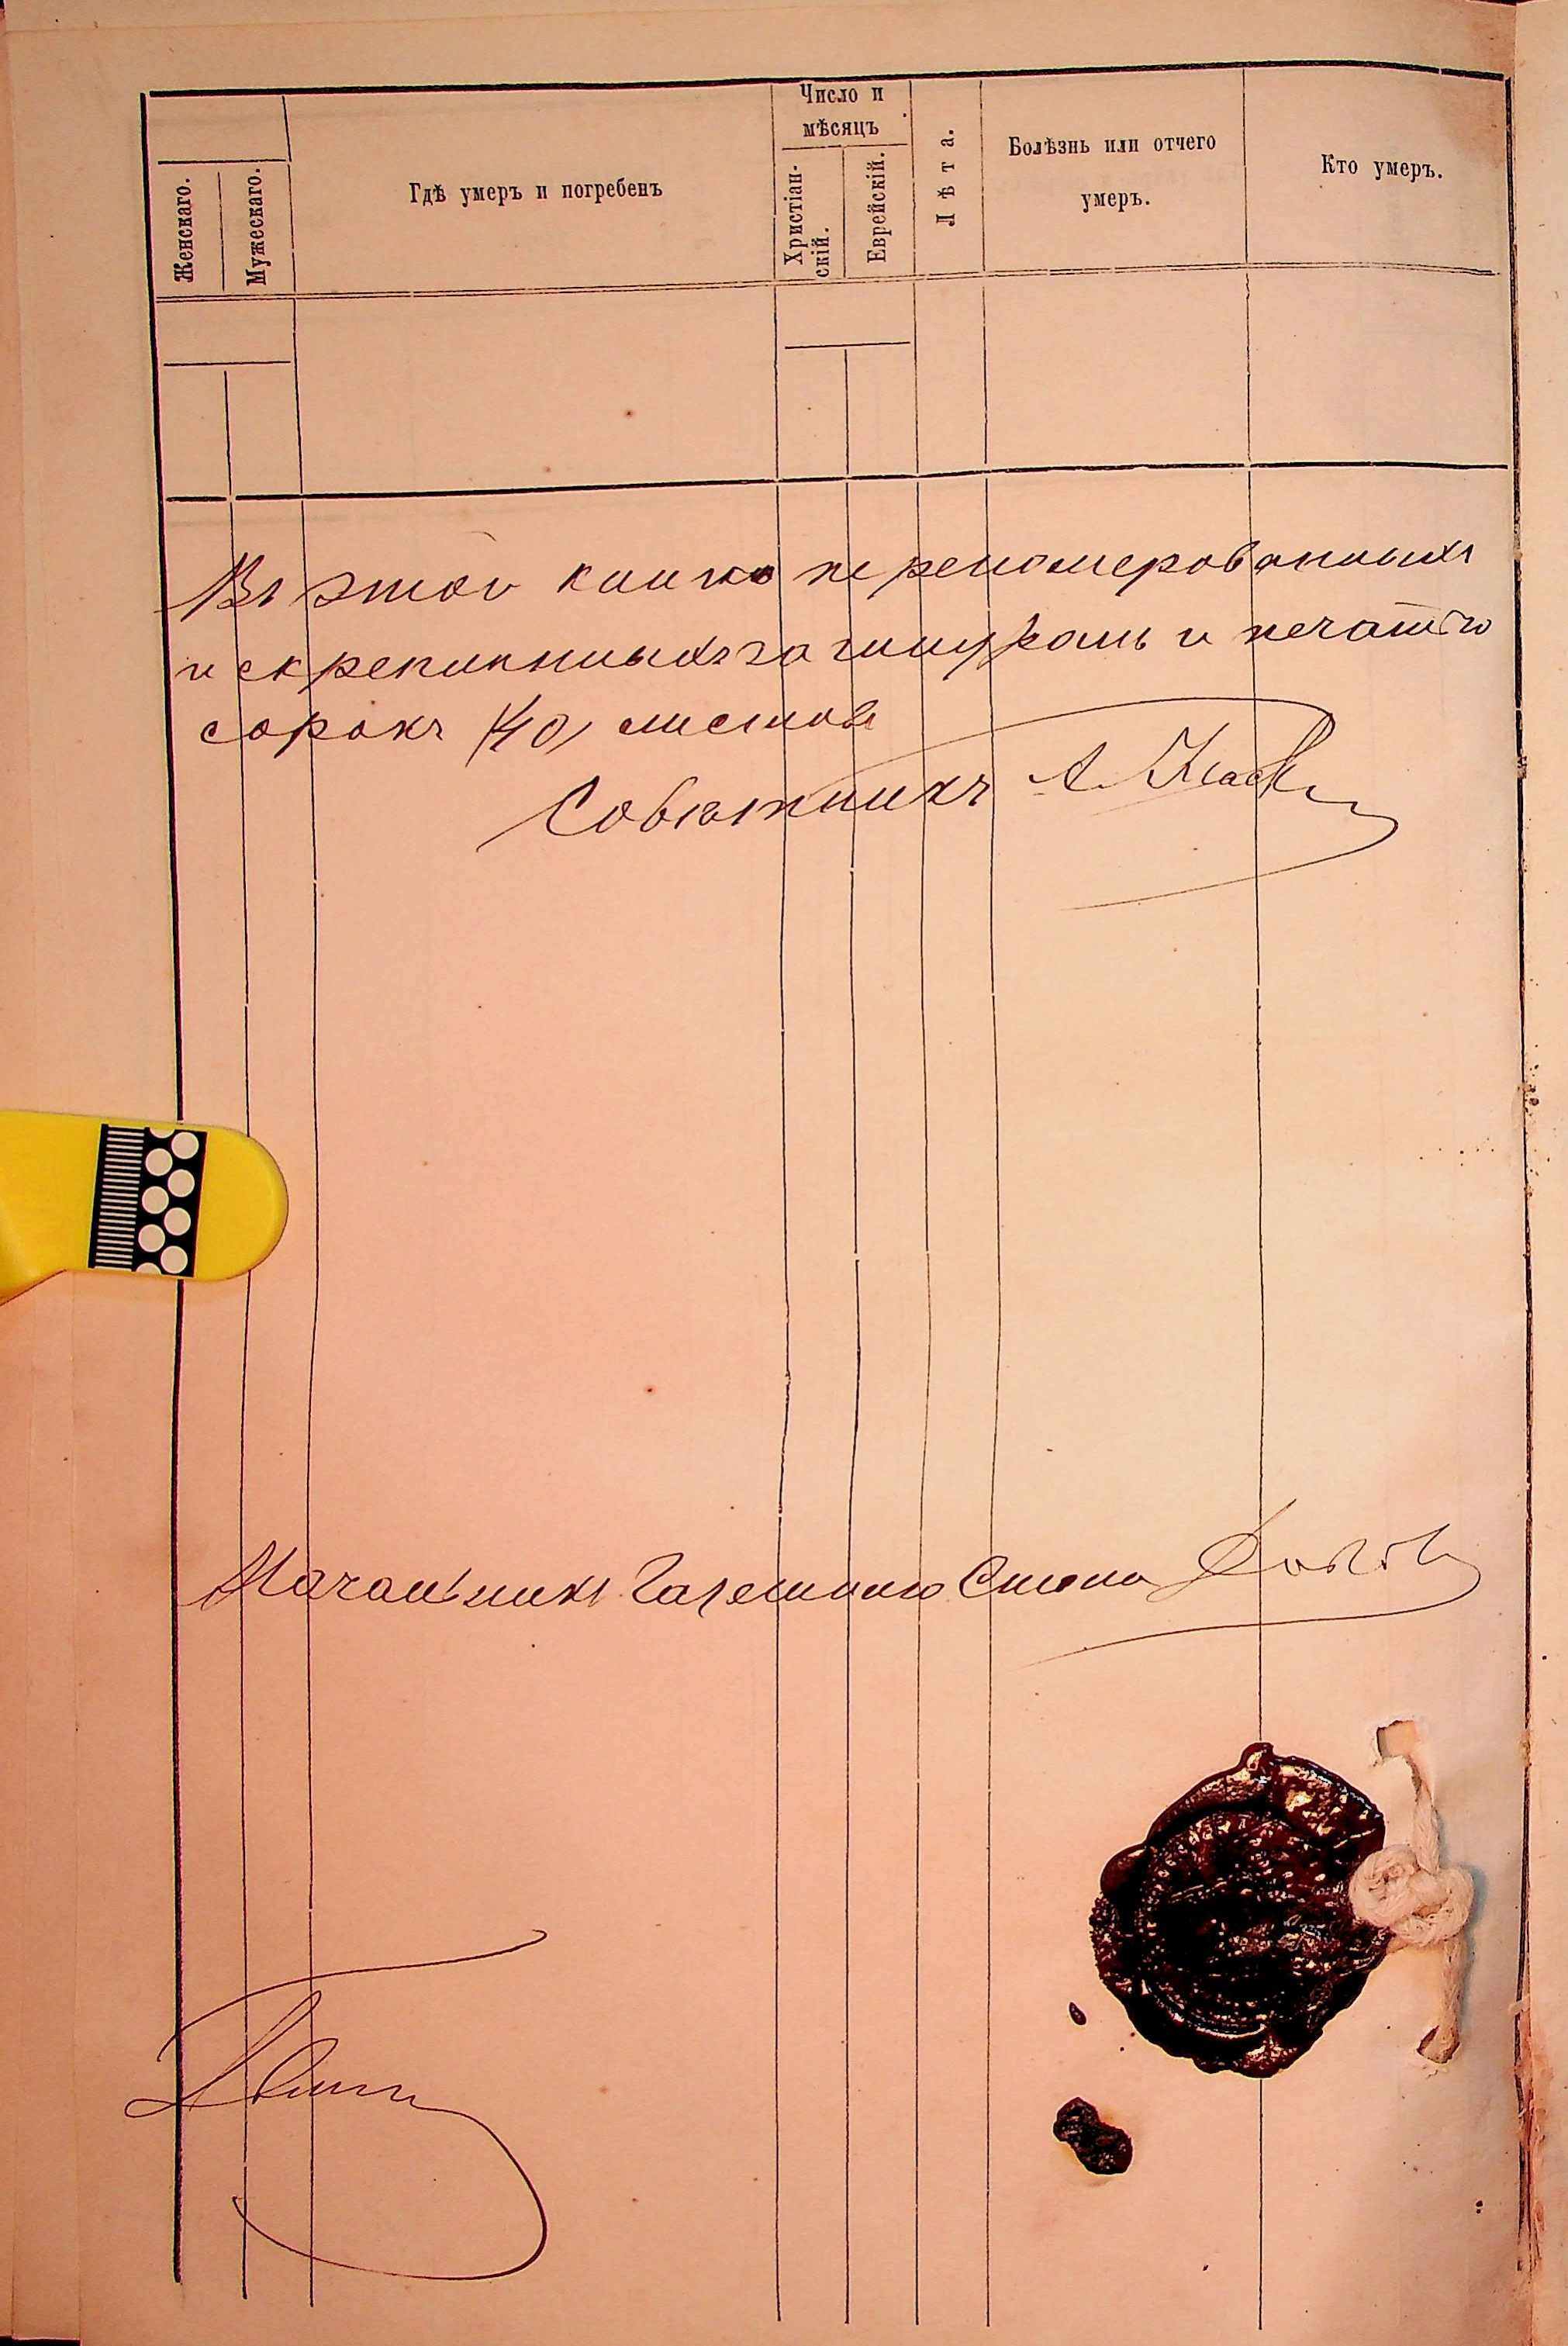 Женскаго.
Мужескаго.
Гдѣ умеръ и погребенъ
Число и
мѣсяцъ
Христіан-
скій.
Еврейскій.
Лѣта.
Болѣзнь или отчего
умеръ.
Кто умеръ.
Въ этой книгѣ переномерованныхъ
и скрепленныхъ за шнуромъ и печатью
сорокъ (40) листовъ
Совѣтникъ А.
Начальникъ Газетнаго Стола